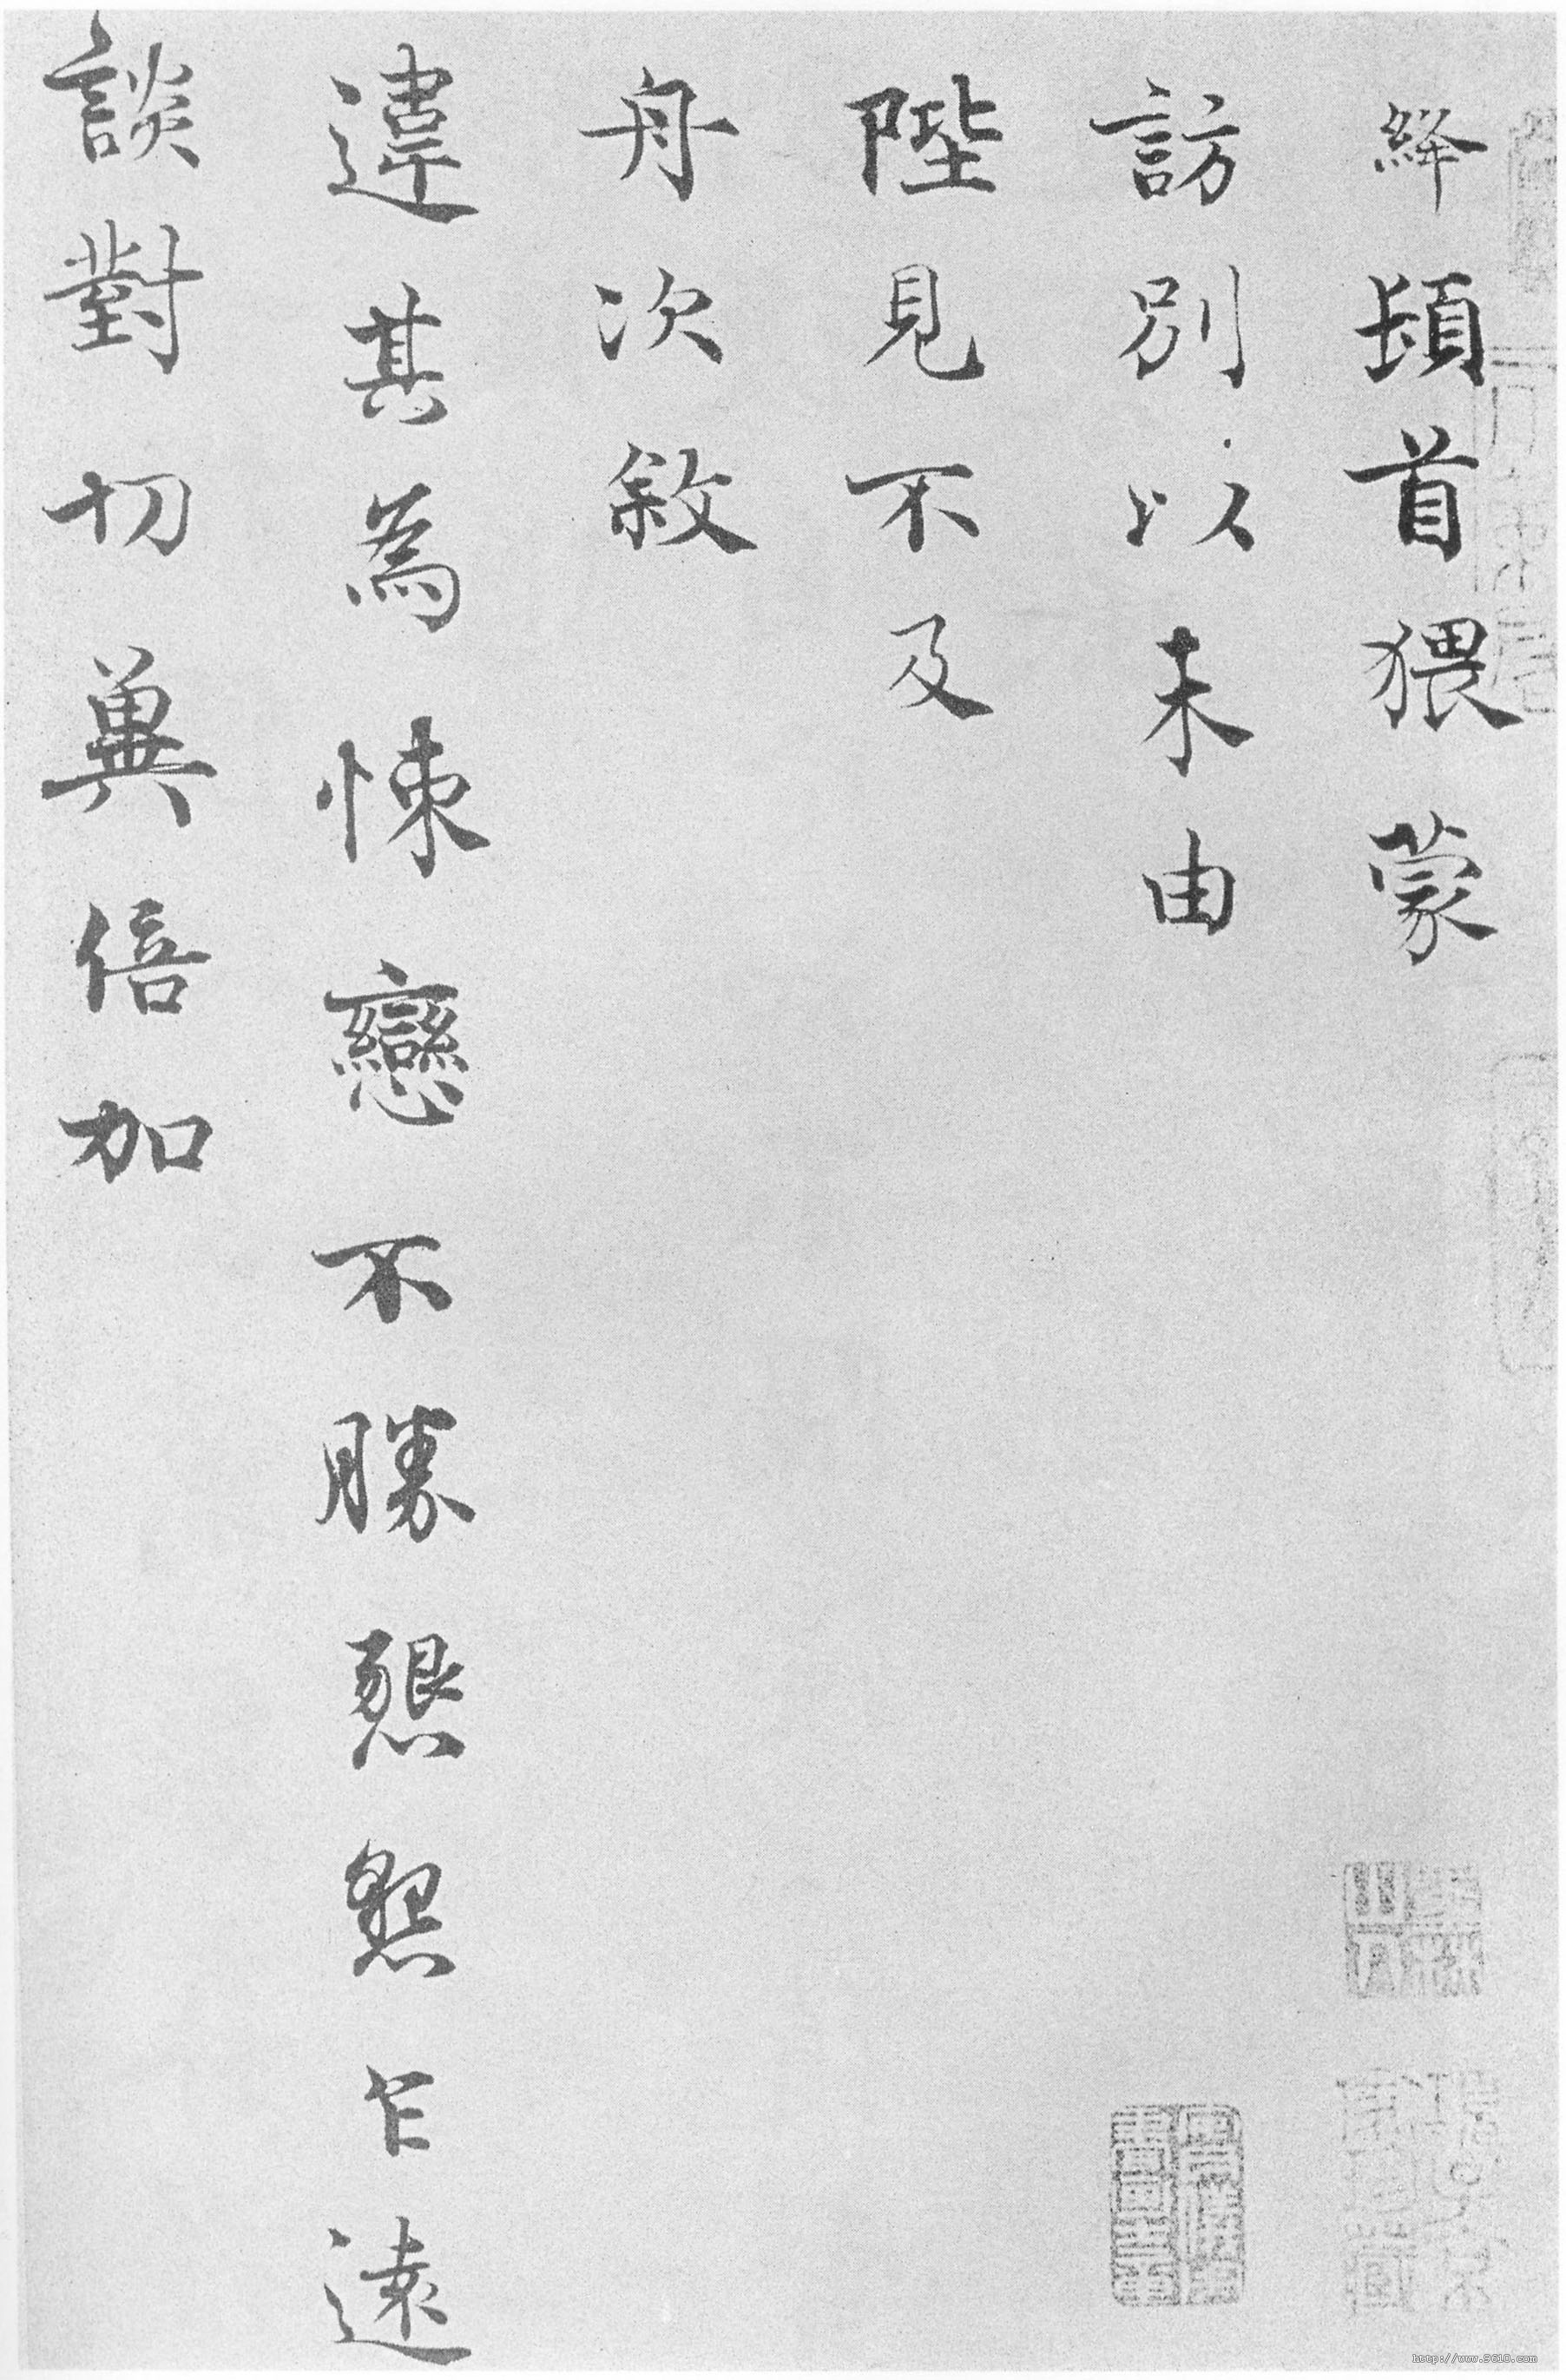 絳頓首猥蒙
訪別以未由
陛見不及
舟次敘
違其為悚戀不勝懇懇乍遠
談對切冀倍加
http://www.9610.com